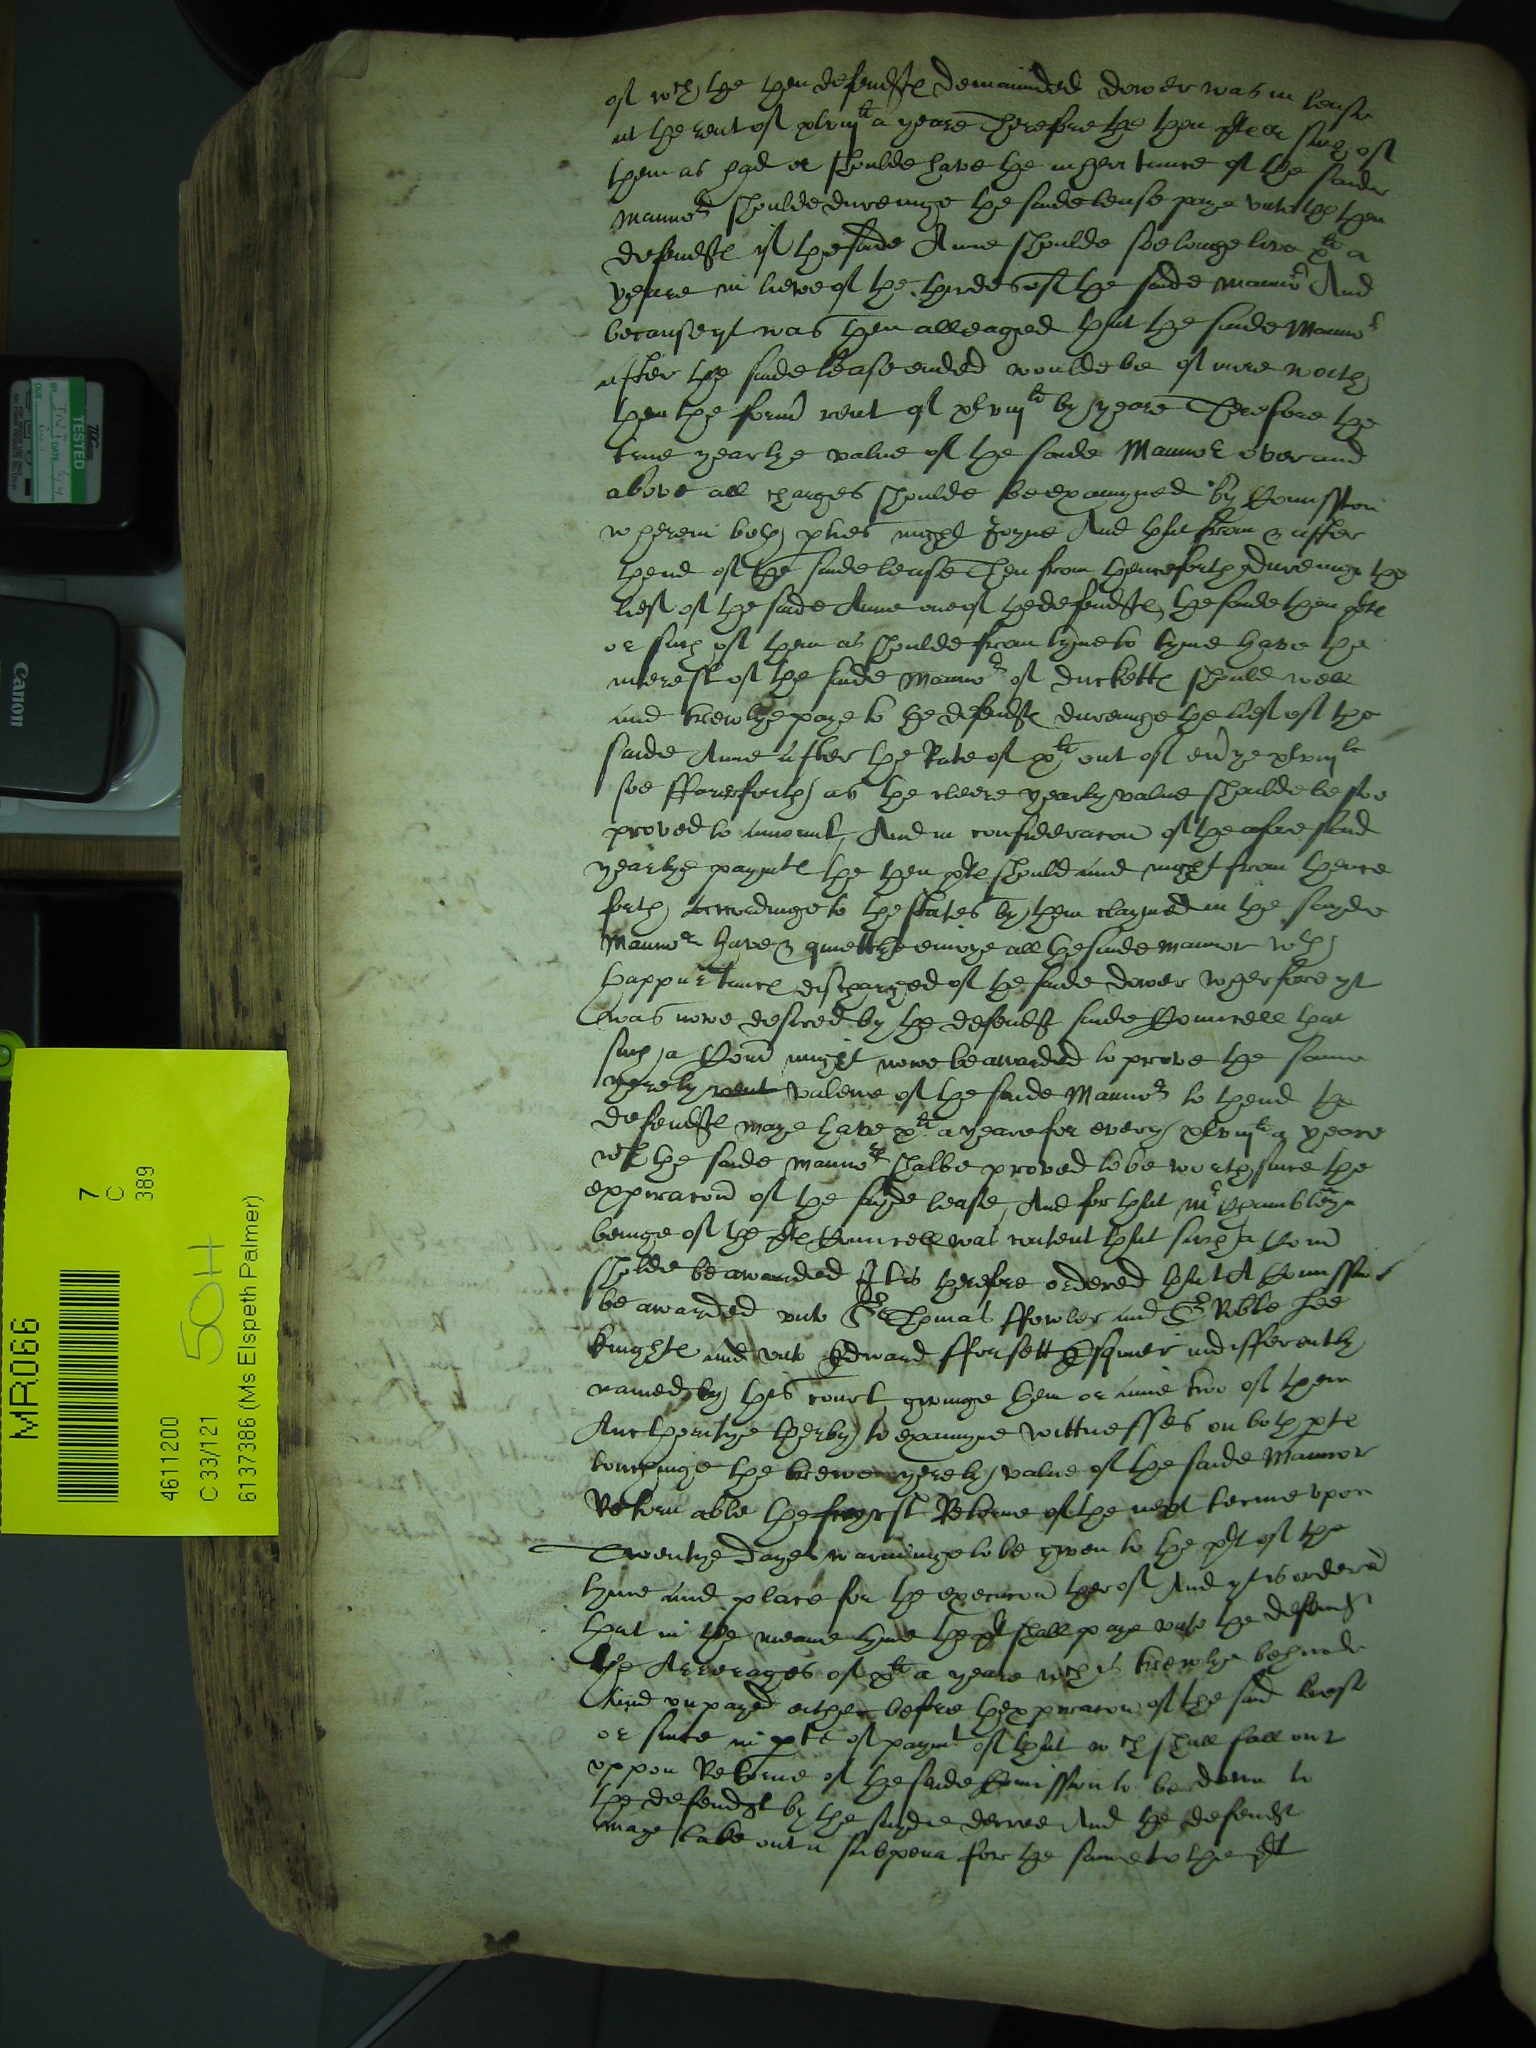 of wch the then defendtes demaunded dower was in lease
at the rent of xlviijli a yeare Therefore the then pltes or such of
them as had or shoulde have the inheritance of the saide
Mannor shoulde duringe the saide lease paye unto the then
defendtes yf the saide Anne shoulde soe longe live xli a
yeare in liewe of the thirdes of the saide Mannor And
because yt was then alleaged that the saide Mannor
after the saide lease ended woulde be of more worth
then the form rent of xlviijli by yeare Therefore the
true yearlye value of the saide Mannor over and
above all charges shoulde be examyned by Comission
wherein both pties might Joyne And that from & after
thend of the saide lease Then from thenceforth duringe the
lief of the saide Anne one of the defendtes, the saide then pltes
or such of them as shoulde from tyme to tyme have the
interest of the saide Mannor of Duckettes should well
and trewlye paye to the defendtes duringe the lief of the
saide Anne after the Rate of xli out of everye xlviijli
soe ffareforth as the cleere yearly value shoulde be soe
proved to amount, And in consideracon of the aforesaid
yearlye paymtes the then pltes should and might from thence
forth accordinge to the states by them claymed in the sayde
Mannor have & quietlye enioye all the saide mannor wth
thappurtenances discharged of the saide dower wherfore yt
was nowe desired by the defendtes saide Councell that
such a Comission might nowe be awarded to prove the same
yerely rent valewe of the saide Mannor to thend the
defendtes maye have xli a yeare for every xlviijli a yeare
wch the saide mannor shalbe proved to be worth since the
expiracon of the sayde lease, And for that Mr
beinge of the pltes Councell was content that such a Comission
sholde be awarded It is therefore ordered that A Comission
be awarded unto Sr Thomas ffowler and Sr Robte Lee
knightes and unto Edward fforsett Esquier indifferently
named by this court, givinge them or anie two of them
Aucthoritye therby to examyne wittnesses on both ptes
touchinge the trewe yerely value of the saide Mannor
Retornable the fyrst Retorne of the next terme upon
Twentye dayes warninge to be given to the plt of the
tyme and place for the execucon therof And yt is ordered
that in the meane tyme the plt shall paye unto the defendt
the Arrerages of xli a yeare wch is trewlye behinde
And unpayed either before thexpiracon of the said lease
or since in pte of paymt of that wch shall fall out
uppon Retorne of the saide Comission to be dewe to
the defendt by the sayde decree And the defendt
maye take out a subpena for the same to the plt
TESTED
DATE
DUE
Canon
MR066
7
C
389
50H
4611200
C 33/121
6137386 (Ms Elspeth Palmer)